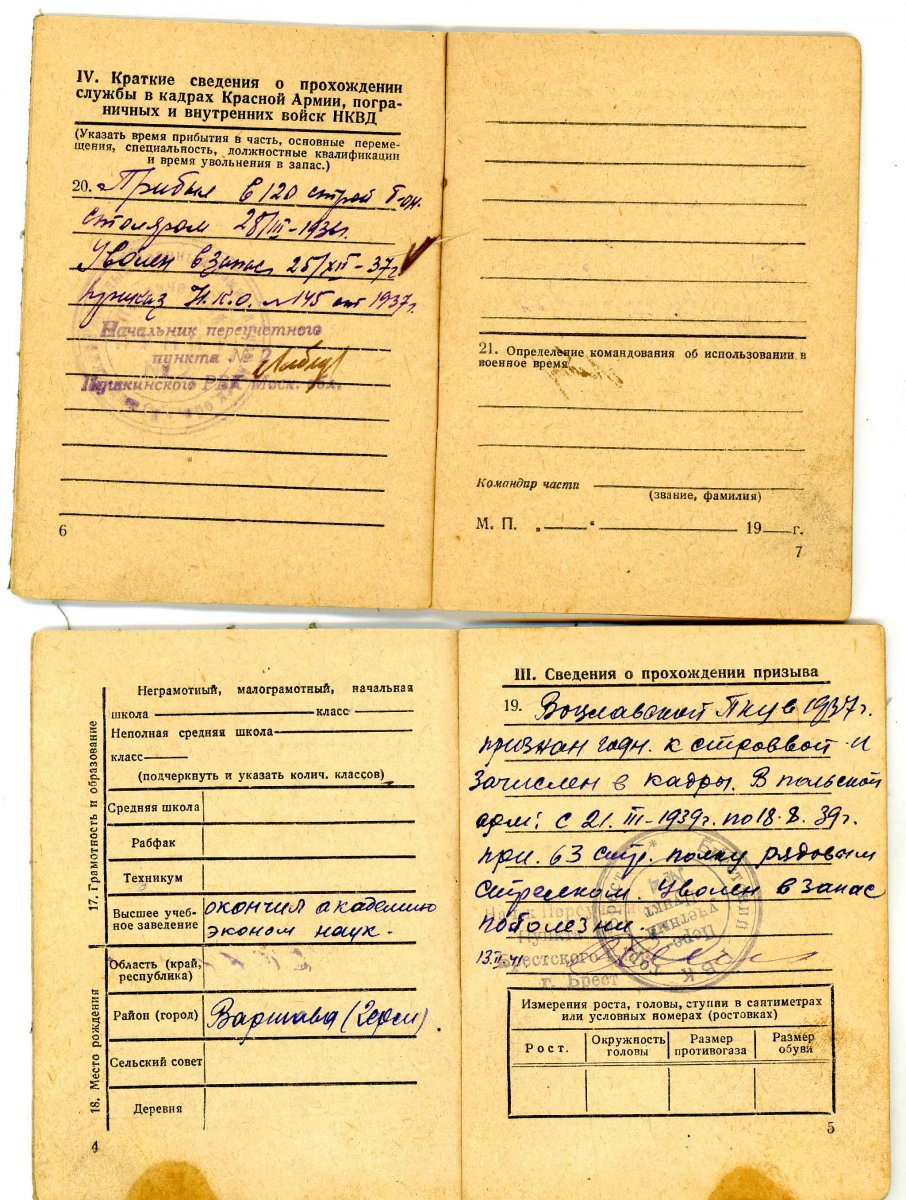 IV. Краткие сведения о прохождении
службы в кадрах Красной Армии, погра-
ничных и внутренних войск НКВД
(Указать время прибытия в часть, основные переме-
щения, специальность, должностные квалификации
и время увольнения в запас.)
20. Прибыл в 120 строй б-он.
столяром 28/III-1936г.
Уволен в запас 25/XII-37г
приказ Н.К.О. № 145 от 1937г.
Начальник переучетного
пункта № 2
Пушкинского РВК Моск. обл.
6
21. Определение командования об использовании в
военное время
Командир части
(звание, фамилия)
М. П. „ “ 19 г.
7
17. Грамотность и образование
Неграмотный, малограмотный, начальная
школа класс
Неполная средняя школа
класс
(подчеркнуть и указать колич. классов)
Средняя школа
Рабфак
Техникум
Высшее учеб-
ное заведение
окончил академию
эконом наук.
18. Место рождения
Область (край,
республика)
Район (город)
Варшава
Сельский совет
Деревня
4
III. Сведения о прохождении призыва
19. Воцлавской Пку в 1937г.
признан годн. к строевой и
зачислен в кадры. В польской
арм: с 21. III-1939г. по 18. 39г.
при. 63 стр. полку рядовым
стрелком. Уволен в запас
по болезни.
13. 41
Брестского
г. Брест
Измерения роста, головы, ступни в сантиметрах
или условных номерах (ростовках)
Рост.
Окружность
головы
Размер
противогаза
Размер
обуви
5